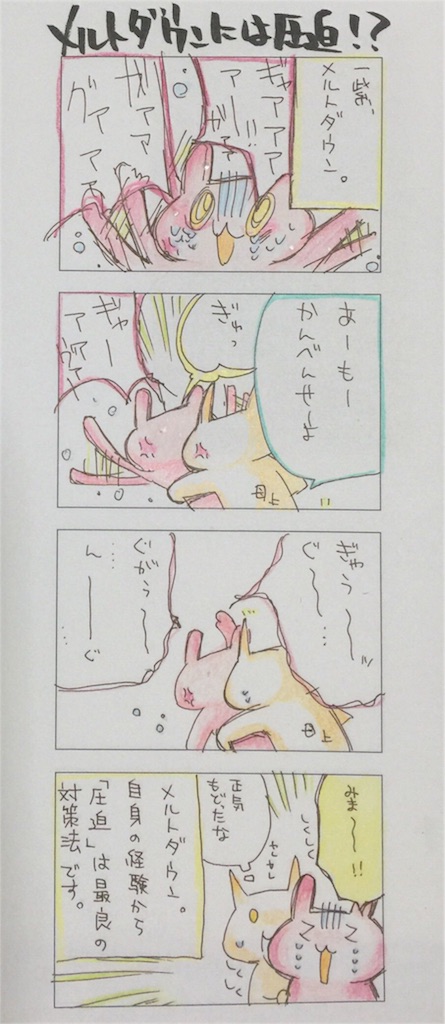 メルトダウンには圧迫!?
一些お、
メルトダウン。
ギャアアア
アー!!
ガァァ
ガアアア
グアアアア
あーもー
かんべんせーよ
ぎゃっ
ぎゃー
母上
ぎゃう〜〜ッ
ぐ〜〜…
ぐがう〜〜
……
ん――ぐ
母上
みま〜〜!!
しくしく
正気
もどったな
メルトダウン。
自身の経験から
「圧迫」は最良の
対策法です。